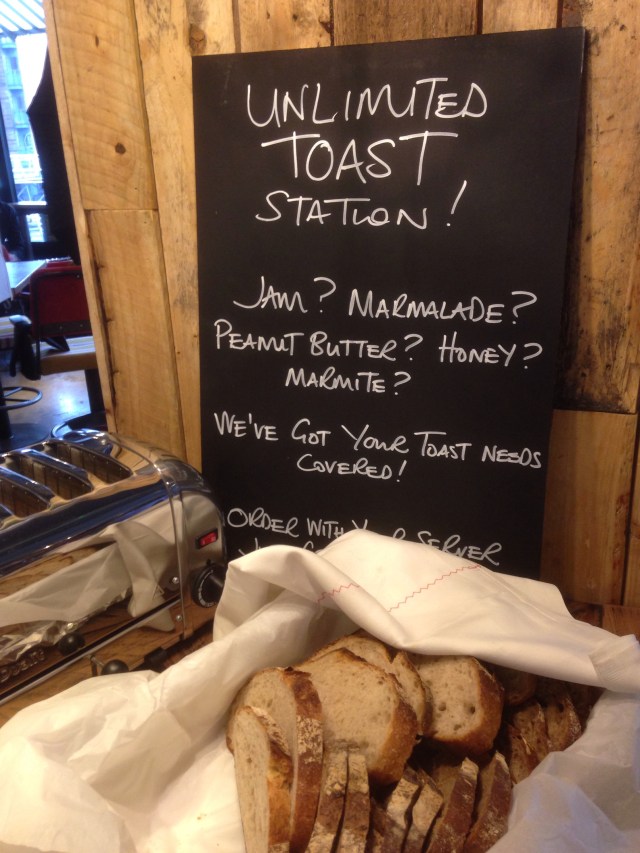 UNLIMITED
TOAST
STATION!
JAM? MARMALADE?
PEANUT BUTTER? HONEY?
MARMITE?
WE'VE GOT YOUR TOAST NEEDS
COVERED!
ORDER WITH YOUR SERVER